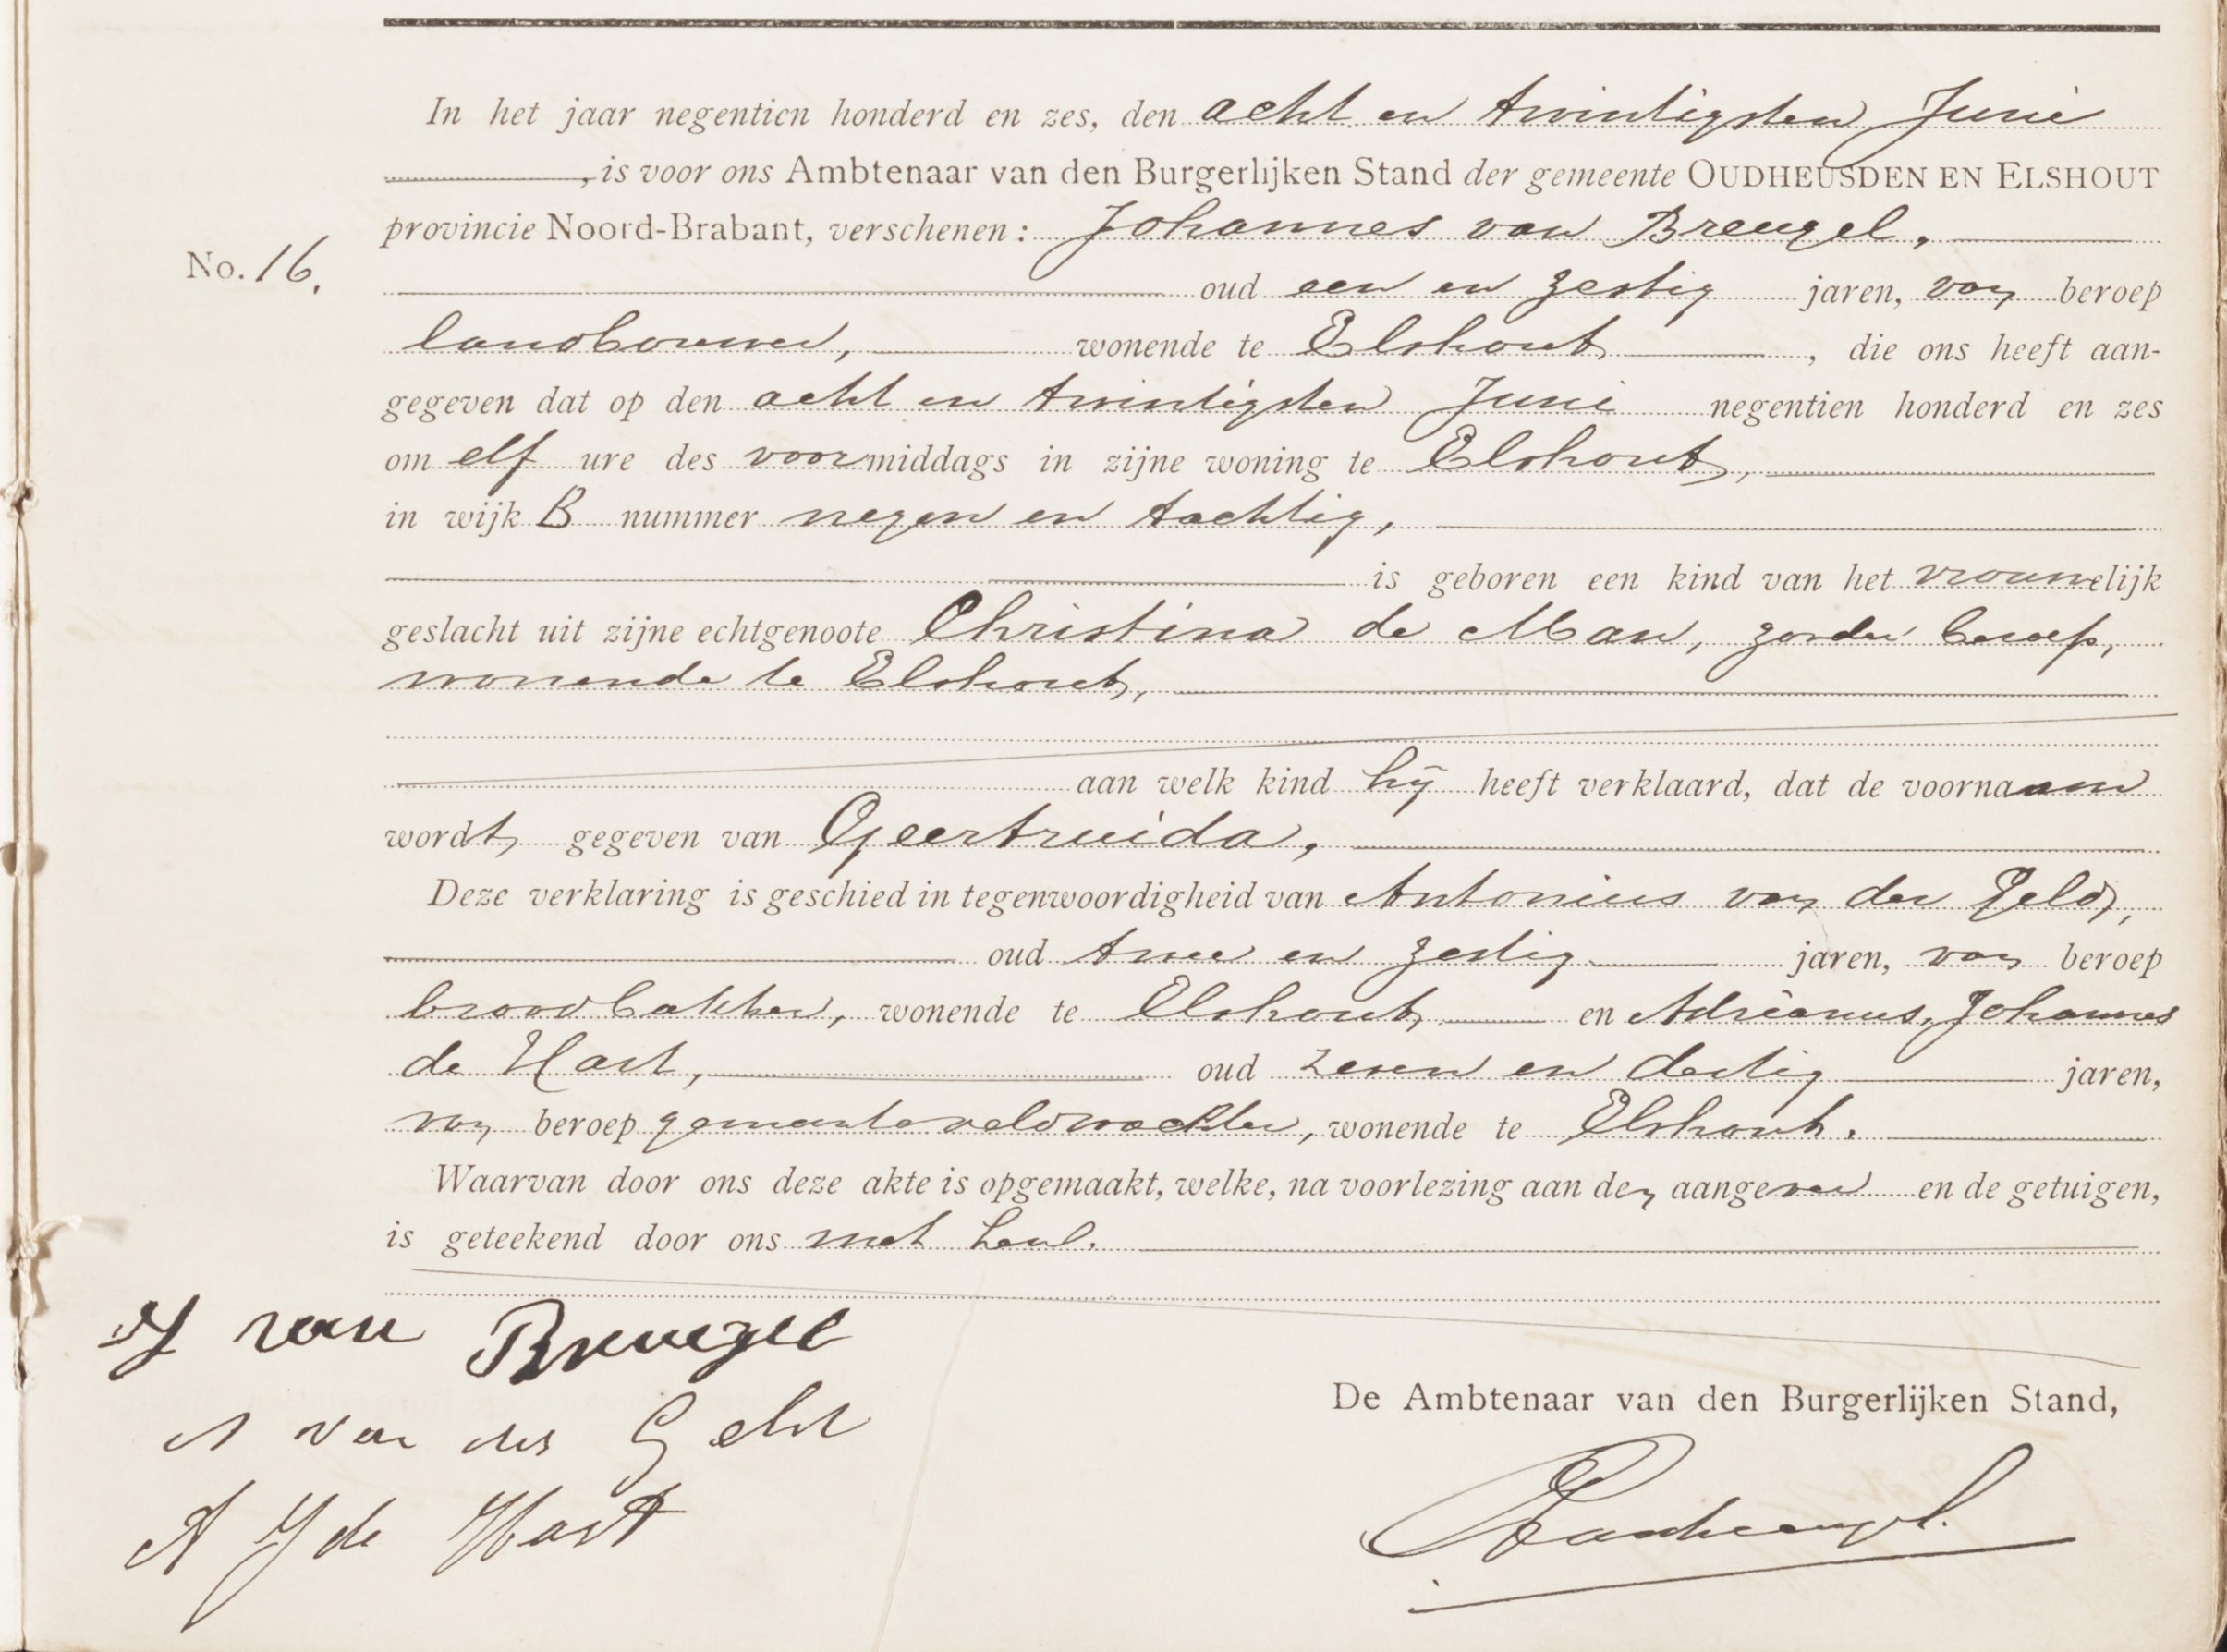 In het jaar negentien honderd en zes, den acht en twintigsten Juni
, is voor ons Ambtenaar van den Burgerlijken Stand der gemeente OUDHEUSDEN EN ELSHOUT
provincie Noord-Brabant, verschenen: Johannes van Breugel,
No. 16.
oud een en zestig jaren, van beroep
landbouwer, wonende te Elshout, die ons heeft aan-
gegeven dat op den acht en twintigsten Juni negentien honderd en zes
om elf ure des voormiddags in zijne woning te Elshout,
in wijk B nummer negen en tachtig,
is geboren een kind van het vrouwelijk
geslacht uit zijne echtgenoote Christina de Man, zonder beroep,
wonende te Elshout,
aan welk kind hij heeft verklaard, dat de voornaam
wordt gegeven van Geertruida,
Deze verklaring is geschied in tegenwoordigheid van Antonius van der Geld,
oud twee en zestig jaren, van beroep
broodbakker, wonende te Elshout en Adrianus, Johannes
de Hart, oud zeven en dertig jaren,
van beroep gemeenteveldwachter, wonende te Elshout.
Waarvan door ons deze akte is opgemaakt, welke, na voorlezing aan den aangever en de getuigen,
is geteekend door ons met hen.
J van Breugel
A van der Geld
De Ambtenaar van den Burgerlijken Stand,
A J de Hart